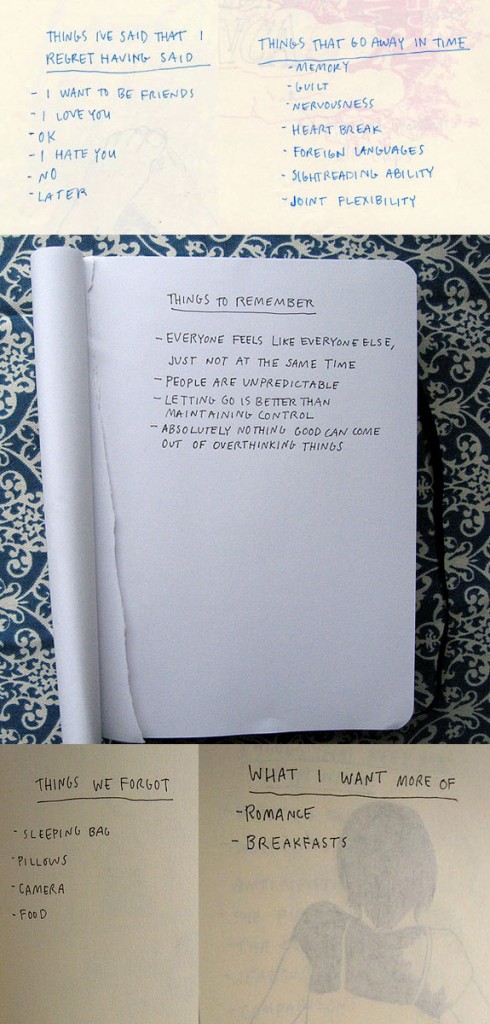 THINGS I'VE SAID THAT I
REGRET HAVING SAID
- I WANT TO BE FRIENDS
- I LOVE YOU
- OK
- I HATE YOU
- NO
- LATER
THINGS THAT GO AWAY IN TIME
- MEMORY
- GUILT
- NERVOUSNESS
- HEART BREAK
- FOREIGN LANGUAGES
- SIGHTREADING ABILITY
- JOINT FLEXIBILITY
THINGS TO REMEMBER
- EVERYONE FEELS LIKE EVERYONE ELSE,
JUST NOT AT THE SAME TIME
- PEOPLE ARE UNPREDICTABLE
- LETTING GO IS BETTER THAN
MAINTAINING CONTROL
- ABSOLUTELY NOTHING GOOD CAN COME
OUT OF OVERTHINKING THINGS
THINGS WE FORGOT
- SLEEPING BAG
- PILLOWS
- CAMERA
- FOOD
WHAT I WANT MORE OF
- ROMANCE
- BREAKFASTS